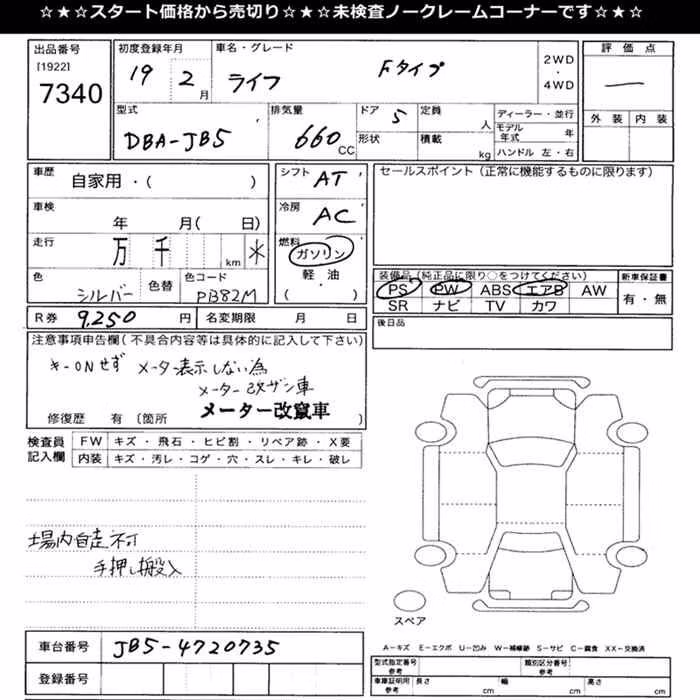 ☆★☆スタート価格から売切り☆★☆未検査ノークレームコーナーです☆★☆
出品番号
[1922]
7340
初度登録年月
19 2月
車名・グレード
ライフ Fタイプ
2WD
・
4WD
評価点
―
外装 内装
型式
DBA-JB5
排気量
660CC
ドア 5
定員 人
形状
積載 kg
ディーラー・並行
モデル年式 年
ハンドル 左・右
車歴
自家用・( )
シフト AT
セールスポイント (正常に機能するものに限ります)
車検
年 月( 日)
冷房
AC
走行
万 千 km *
燃料
ガソリン
軽・油
( )
色
シルバー
色替
色コード
PB82M
装備品(純正品に限り○をつけてください)
PS PW ABS エアB AW
SR ナビ TV カワ
新車保証書
有・無
R券 9,250 円
名変期限 月 日
後日品
注意事項申告欄(不具合内容等は具体的に記入して下さい)
キーONせず メーター表示しない為
メーター改ザン車
メーター改竄車
修復歴 有 〔箇所 〕
検査員
記入欄
FW キズ・飛石・ヒビ割・リペア跡・X要
内装 キズ・汚レ・コゲ・穴・スレ・キレ・破レ
場内自走不可
手押し搬入
スペア
車台番号 JB5-4720735
登録番号
A−キズ E−エクボ U−凹み W−補修跡 S−サビ C−腐食 XX−交換済
型式指定番号
参考
類別区分番号
参考
車庫証明用
参考
長さ cm
幅 cm
高さ cm